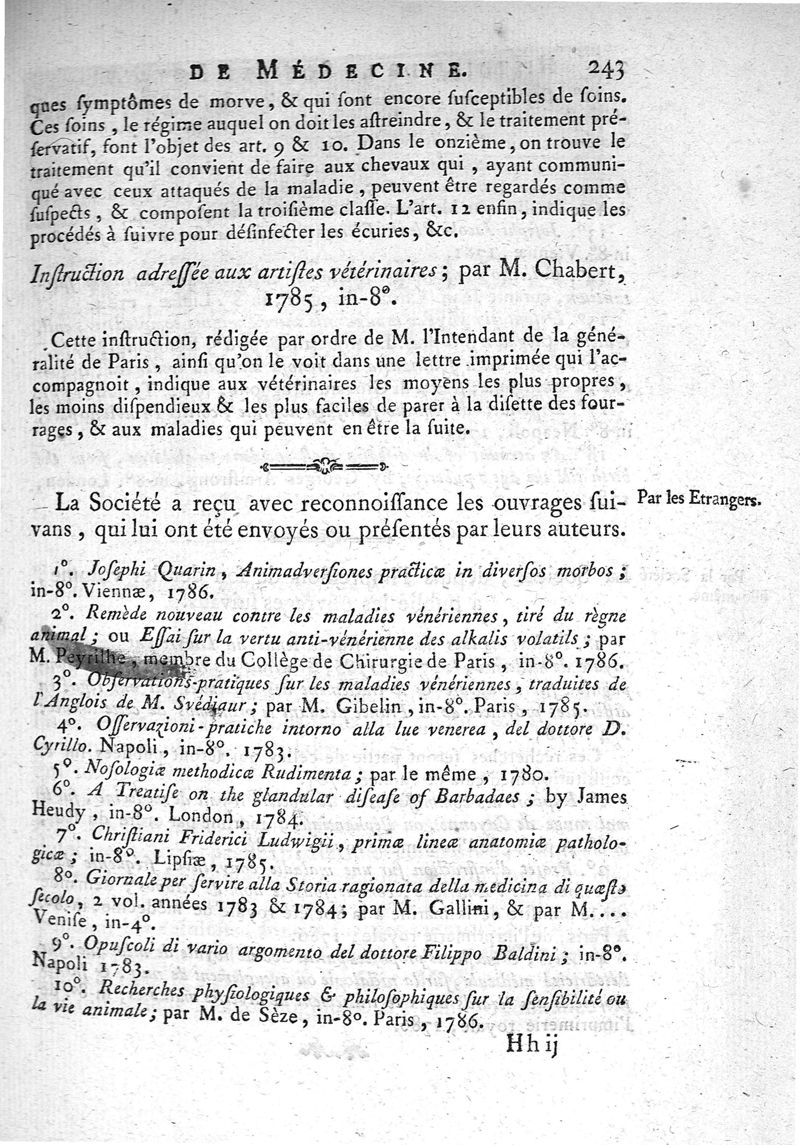 DE MÉDECINE. 243
ques ſymptômes de morve, & qui ſont encore ſuſceptibles de ſoins.
Ces ſoins, le régime auquel on doit les aſtreindre, & le traitement pré-
ſervatif, font l'objet des art. 9 & 10. Dans le onzième, on trouve le
traitement qu'il convient de faire aux chevaux qui, ayant communi-
qué avec ceux attaqués de la maladie, peuvent être regardés comme
ſuſpects, & compoſent la troiſième claſſe. L'art. 12 enfin, indique les
procédés à ſuivre pour déſinfecter les écuries, &c.
Inſtruction adreſſée aux artiſtes vétérinaires; par M. Chabert,
1785, in-8°.
Cette inſtruction, rédigée par ordre de M. l'Intendant de la géné-
ralité de Paris, ainſi qu'on le voit dans une lettre imprimée qui l'ac-
compagnoit, indique aux vétérinaires les moyens les plus propres,
les moins diſpendieux & les plus faciles de parer à la diſette des four-
rages, & aux maladies qui peuvent en être la ſuite.
La Société a reçu avec reconnoiſſance les ouvrages ſui-
vans, qui lui ont été envoyés ou préſentés par leurs auteurs.
Par les Etrangers.
1°. Joſephi Quarin, Animadverſiones practicæ in diverſos morbos;
in-8°. Viennæ, 1786.
2°. Remède nouveau contre les maladies vénériennes, tiré du règne
animal; ou Eſſai ſur la vertu anti-vénérienne des alkalis volatils; par
M. Peyrilhe, membre du Collège de Chirurgie de Paris, in-8°. 1786.
3°. Obſervations-pratiques ſur les maladies vénériennes, traduites de
l'Anglois de M. Svédiaur; par M. Gibelin, in-8°. Paris, 1785.
4°. Oſſervazioni-pratiche intorno alla lue venerea, del dottore D.
Cyrillo. Napoli, in-8°. 1783.
5°. Noſologiæ methodicæ Rudimenta; par le même, 1780.
6°. A Treatiſe on the glandular diſeaſe of Barbadaes; by James
Heudy, in-8°. London, 1784.
7°. Chriſtiani Friderici Ludwigii, primæ lineæ anatomiæ patholo-
gicæ; in-8°. Lipſiæ, 1785.
8°. Giornale per ſervire alla Storia ragionata della medicina di quæſto
ſecolo, 2 vol. années 1783 & 1784; par M. Gallini, & par M....
Veniſe, in-4°.
9°. Opuſcoli di vario argomento del dottore Filippo Baldini; in-8°.
Napoli 1783.
10°. Recherches phyſiologiques & philoſophiques ſur la ſenſibilité ou
la vie animale; par M. de Sèze, in-8°. Paris, 1786.
Hh ij